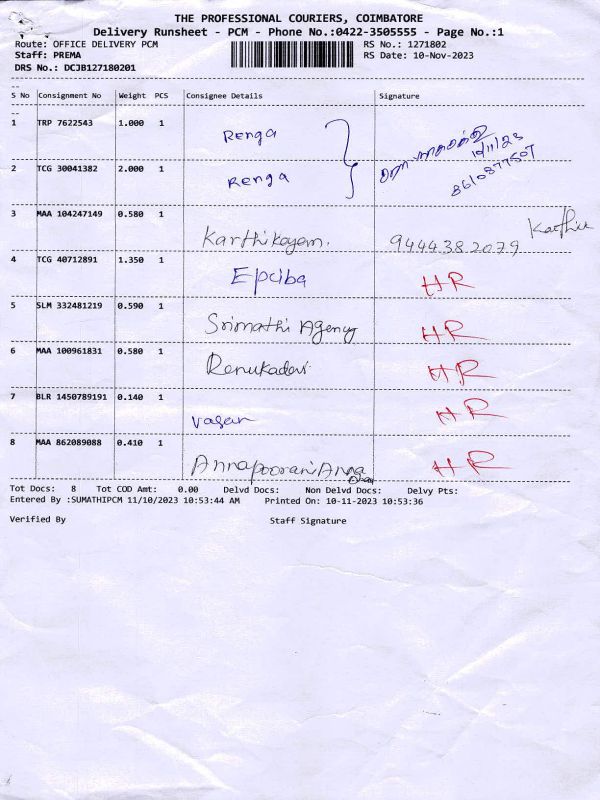 THE PROFESSIONAL COURIERS, COIMBATORE
Delivery Runsheet - PCM - Phone No.:0422-3505555 - Page No.:1
Route: OFFICE DELIVERY PCM RS No.: 1271802
Staff: PREMA RS Date: 10-Nov-2023
DRS No.: DCJB127180201
S No Consignment No Weight PCS Consignee Details Signature
1 TRP 7622543 1.000 1 Renga
10/11/23
2 TCG 30041382 2.000 1 Renga 8610877507
3 MAA 104247149 0.580 1 Karthikayem. 9444382079 Karthik
4 TCG 40712891 1.350 1 Epciba HR
5 SLM 332481219 0.590 1 Srimathi Agency HR
6 MAA 100961831 0.580 1 Renukadevi HR
7 BLR 1450789191 0.140 1 vasan HR
8 MAA 862089088 0.410 1 Annapoorani Anna HR
Tot Docs: 8 Tot COD Amt: 0.00 Delvd Docs: Non Delvd Docs: Delvy Pts:
Entered By :SUMATHIPCM 11/10/2023 10:53:44 AM Printed On: 10-11-2023 10:53:36
Verified By Staff Signature